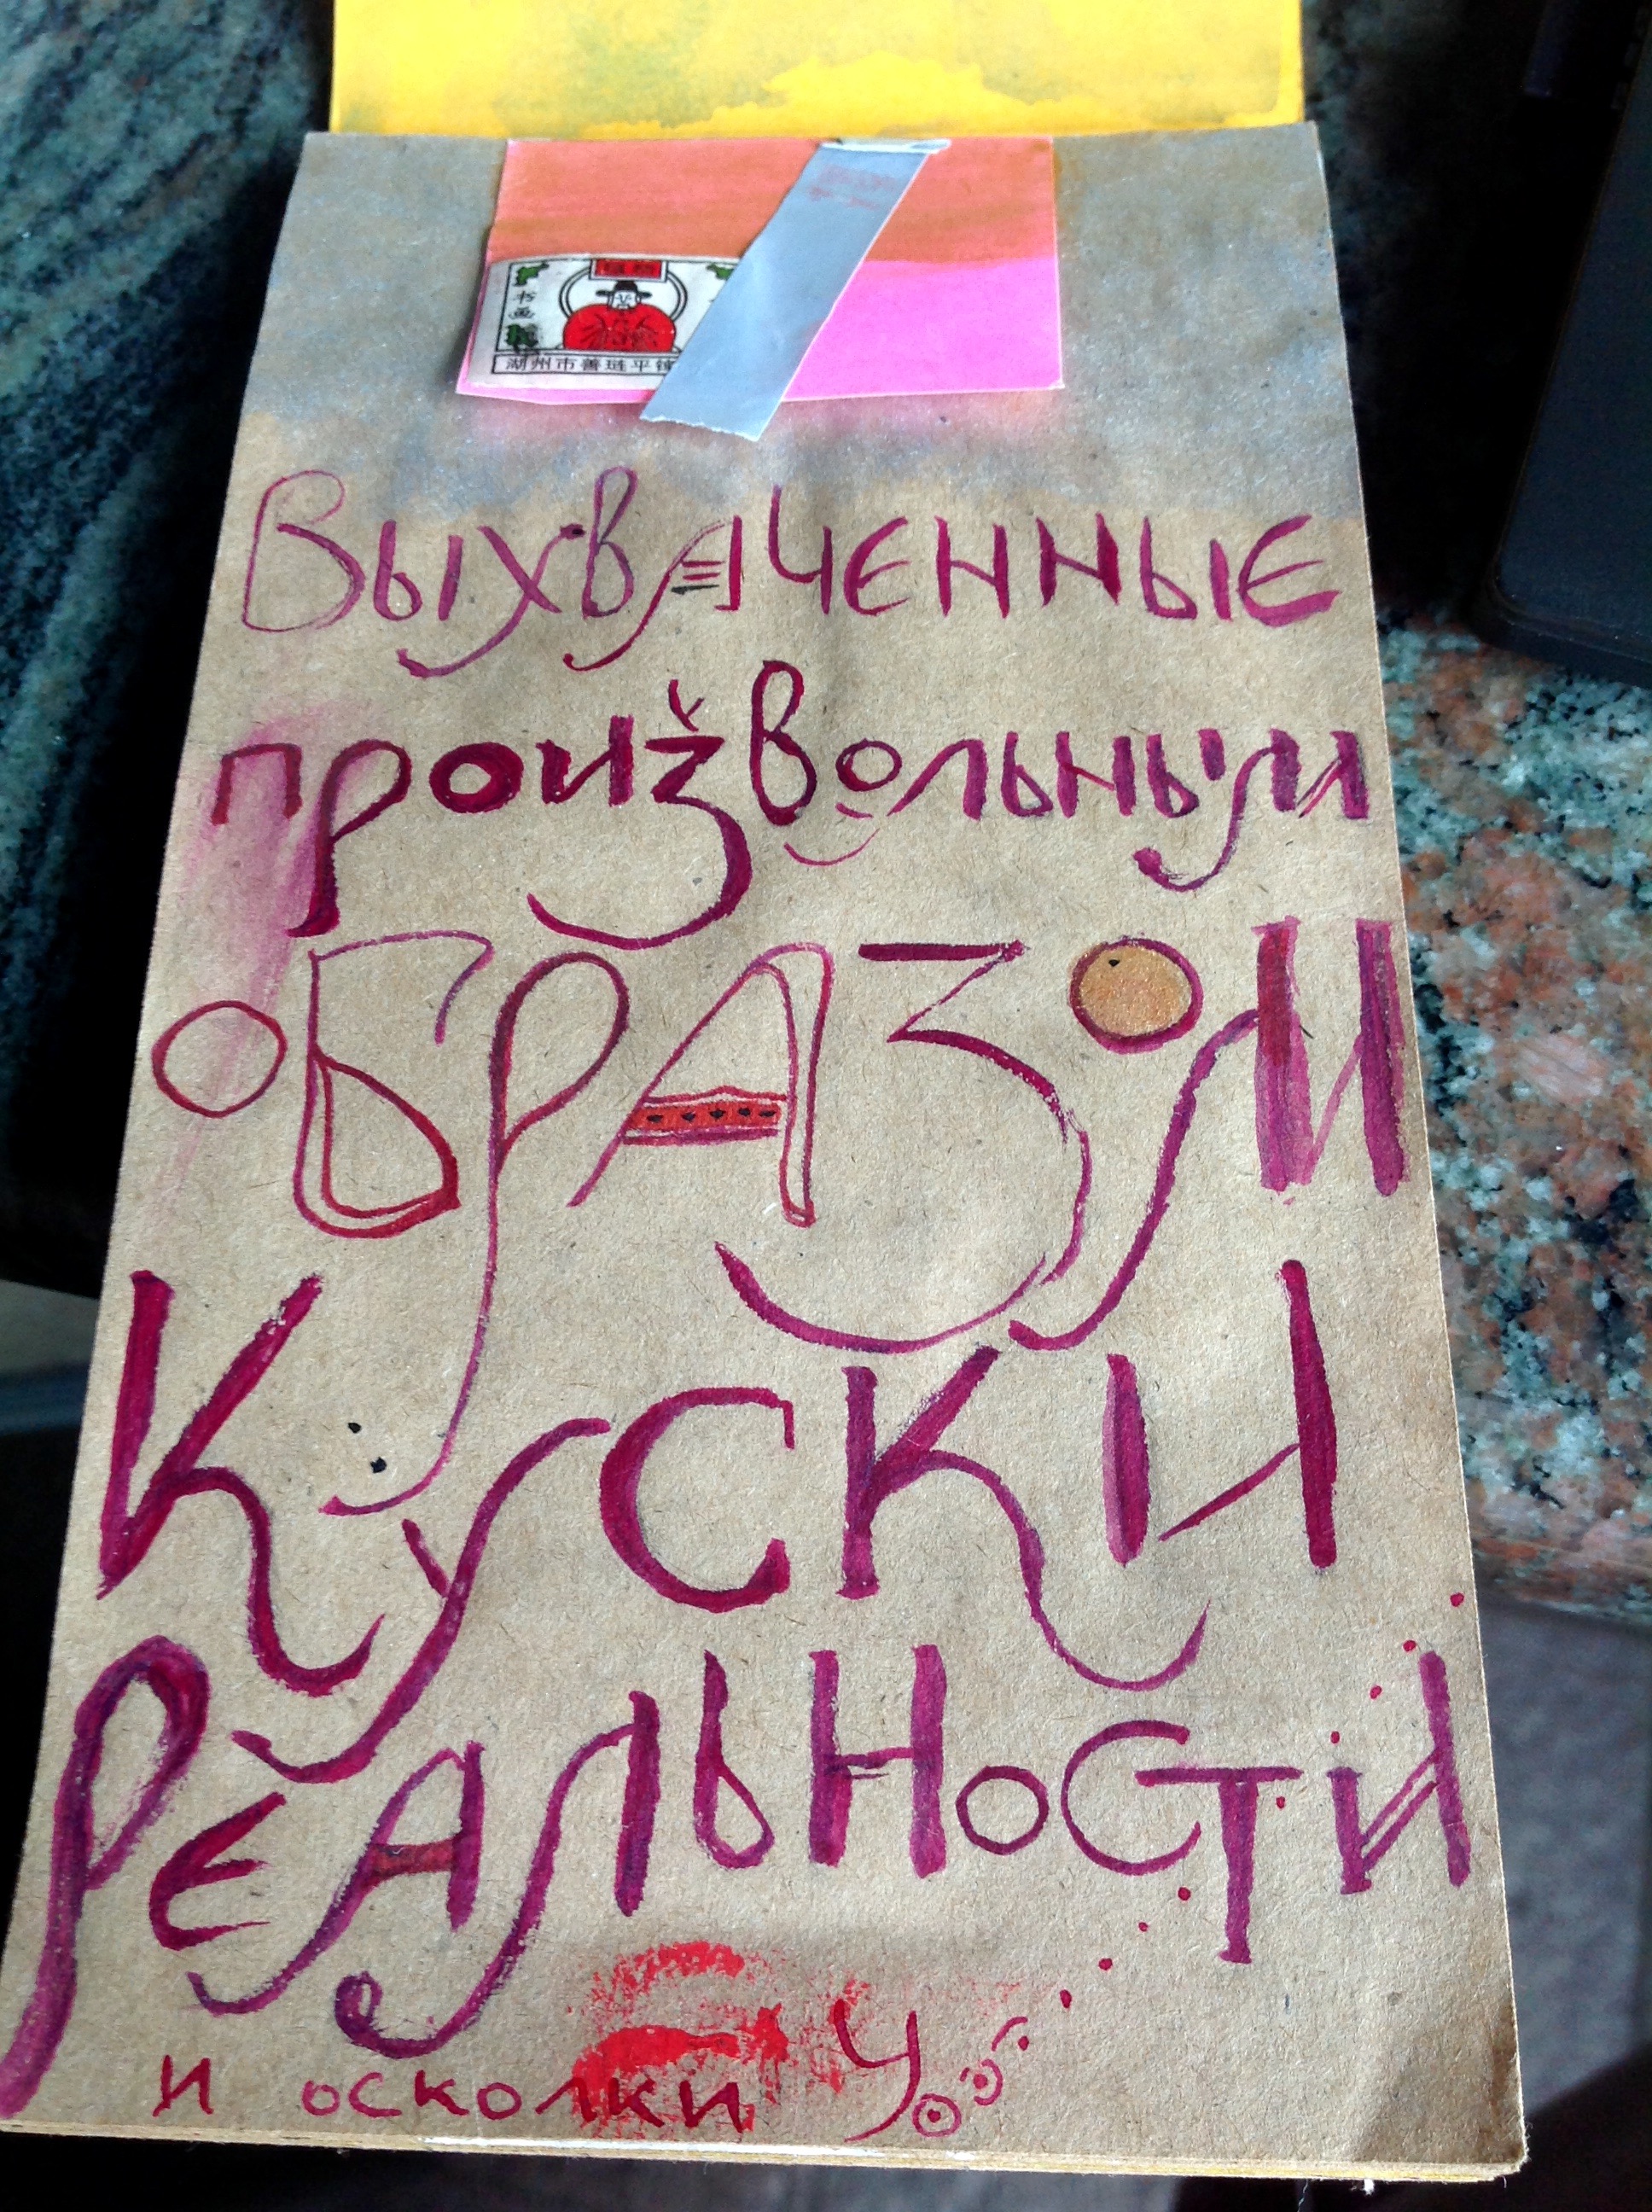 书画
湖州市善琏平
Выхваченные
произвольным
образом
куски
реальности
и осколки